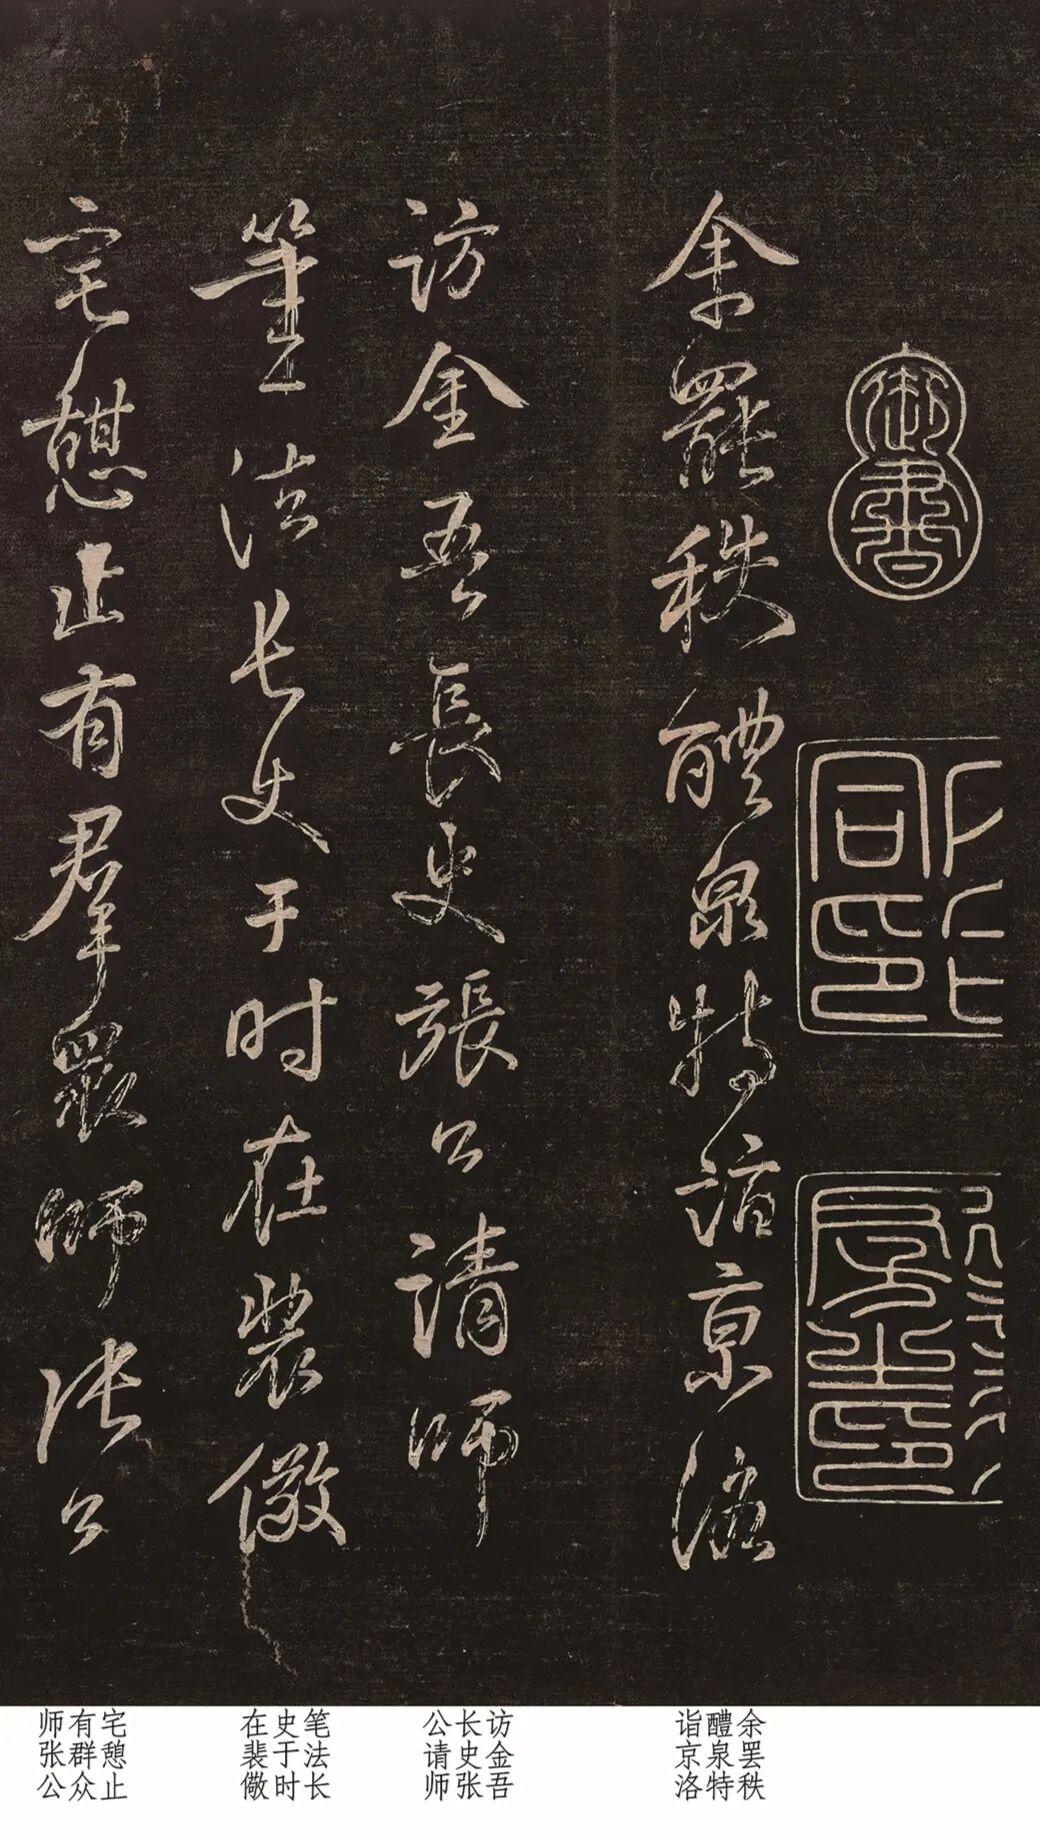 御書
余罷秩醴泉特詣京洛
訪金吾長史張公請師
筆法长史于时在裴儆
宅憩止有群眾師张公
余罢秩
醴泉特
诣京洛
访金吾
长史张
公请师
笔法长
史于时
在裴儆
宅憩止
有群众
师张公